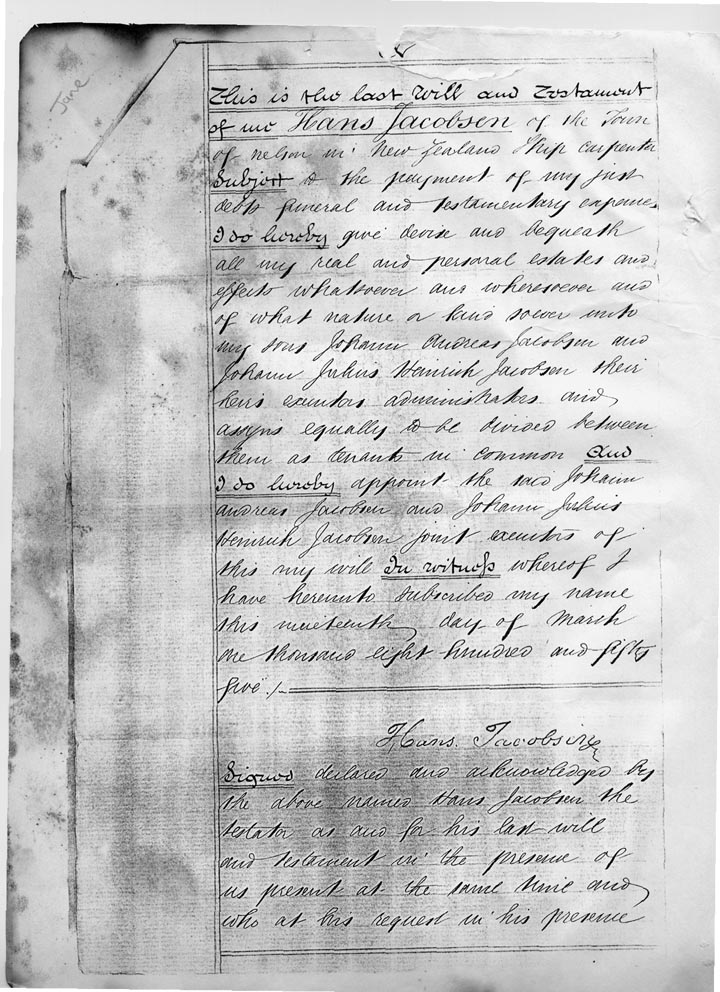 Jane
This is the last Will and Testament
of me Hans Jacobsen of the Town
of nelson in New Zealand Ship carpenter
Subject to the payment of my just
debts funeral and testamentary expenses
I do hereby give devise and bequeath
all my real and personal estates and
effects whatsoever and wheresoever and
of what nature or kind soever unto
my sons Johann Andreas Jacobsen and
Johann Julius Heinrich Jacobsen their
heirs executors administrators and
assigns equally to be divided between
them as tenants in common And
I do hereby appoint the said Johann
Andreas Jacobsen and Johann Julius
Heinrich Jacobsen joint executors of
this my will In witness whereof I
have hereunto subscribed my name
this nineteenth day of March
one thousand eight hundred and fifty
five ./-
Hans Jacobsen
Signed declared and acknowledged by
the above named Hans Jacobsen the
testator as and for his last will
and testament in the presence of
us present at the same time and
who at his request in his presence